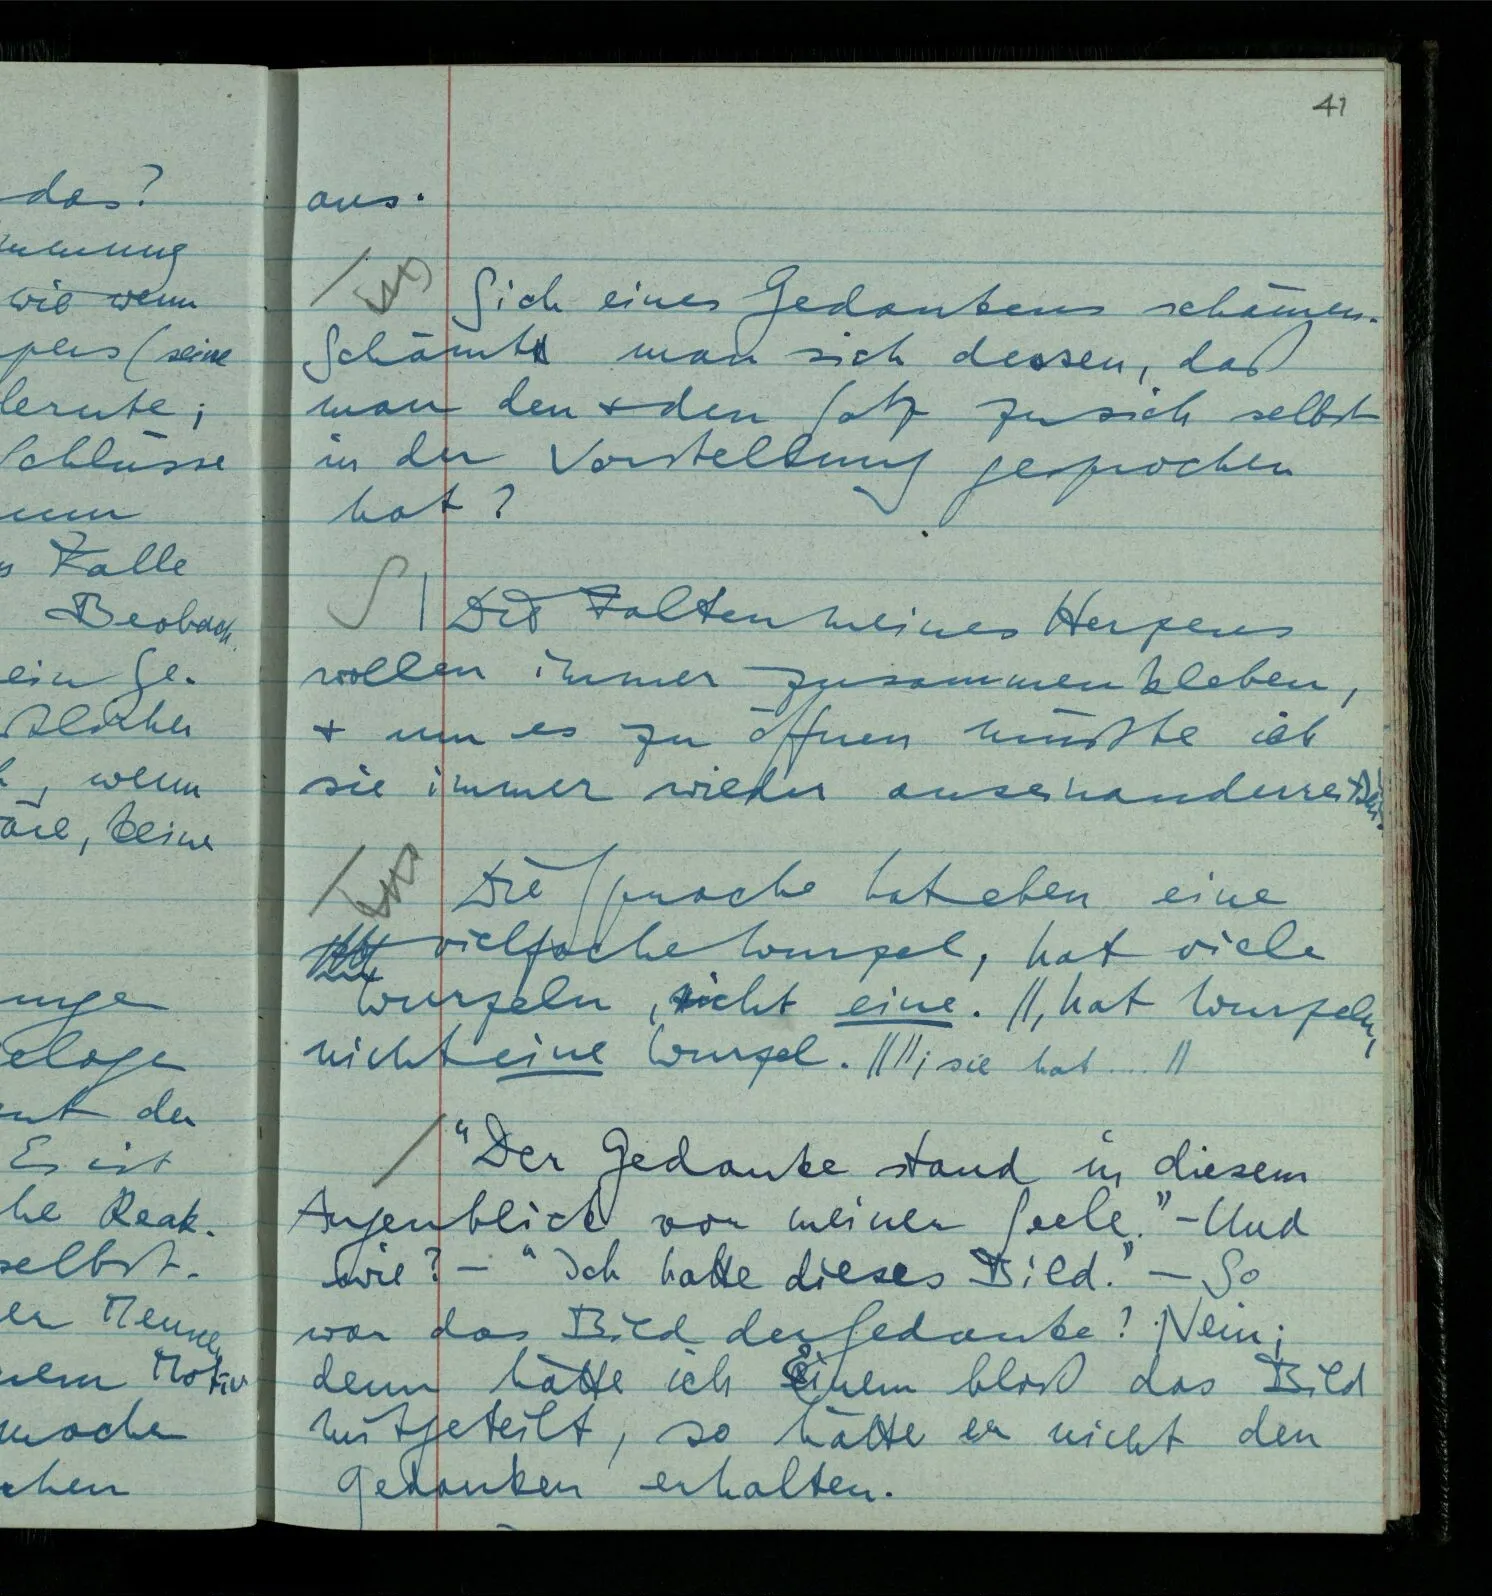 das?
wie wenn
pers (seine
lernte;
Schlüsse
Falle
Beobach
ein Ge-
, wenn
äre, keine
Es ist
che Reak-
selbst.
er Mensch
nem Motiv
41
aus.
Sich eines Gedankens schämen.
Schämt man sich dessen, daß
man den + den Satz zu sich selbst
in der Vorstellung gesprochen
hat?
S | Die Falten meines Herzens
wollen immer zusammenkleben,
+ um es zu öffnen müßte ich
sie immer wieder auseinanderreißen.
Die Sprache hat eben eine
vielfache Wurzel, hat viele
Wurzeln, nicht eine. //, hat Wurzeln,
nicht eine Wurzel. // //; sie hat .... //
/ "Der Gedanke stand in diesem
Augenblick vor meiner Seele." – Und
wie? – "Ich hatte dieses Bild." – So
war das Bild der Gedanke? Nein;
denn hätte ich Einem bloß das Bild
mitgeteilt, so hätte er nicht den
Gedanken erhalten.